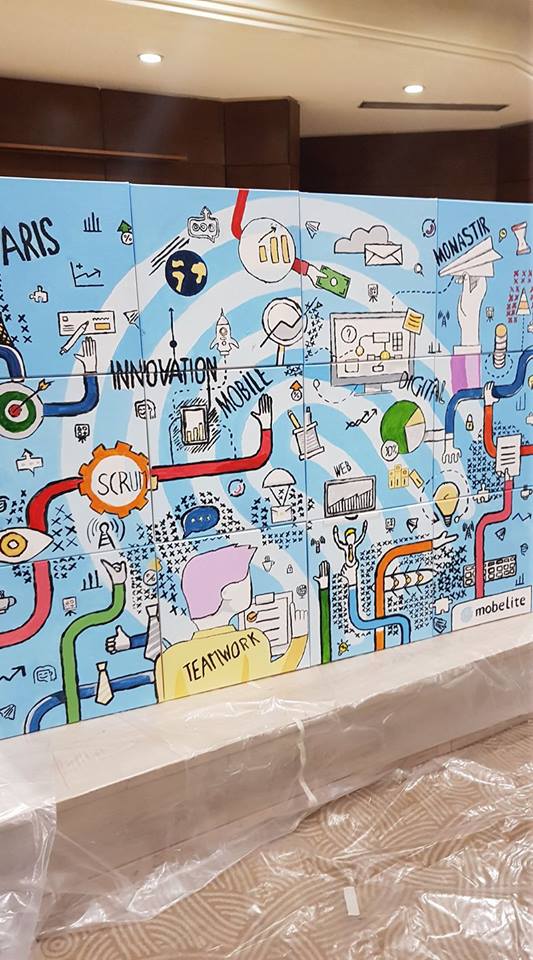 ARIS
MONASTIR
INNOVATION
MOBILE
DIGITAL
SCRUM
WEB
30%
TEAMWORK
mobelite